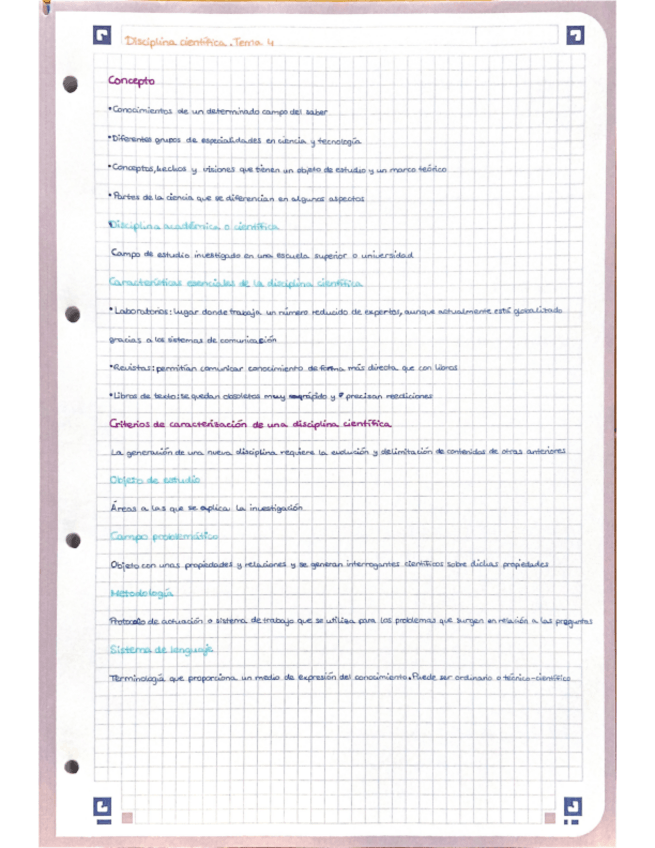 Disciplina científica. Tema 4
Concepto
• Conocimientos de un determinado campo del saber
• Diferentes grupos de especialidades en ciencia y tecnología
• Conceptos, hechos y visiones que tienen un objeto de estudio y un marco teórico
• Partes de la ciencia que se diferencian en algunos aspectos
Disciplina académica o científica
Campo de estudio investigado en una escuela superior o universidad
Características esenciales de la disciplina científica
• Laboratorios: lugar donde trabaja un número reducido de expertos, aunque actualmente está globalizado
gracias a los sistemas de comunicación
• Revistas: permitían comunicar conocimiento de forma más directa que con libros
• Libros de texto: se quedan obsoletos muy rápido y precisan reediciones
Criterios de caracterización de una disciplina científica
La generación de una nueva disciplina requiere la evolución y delimitación de contenidos de otras anteriores
Objeto de estudio
Áreas a las que se aplica la investigación
Campo problemático
Objeto con unas propiedades y relaciones y se generan interrogantes científicos sobre dichas propiedades
Metodología
Protocolo de actuación o sistema de trabajo que se utiliza para los problemas que surgen en relación a las preguntas
Sistema de lenguaje
Terminología que proporciona un medio de expresión del conocimiento. Puede ser ordinario o técnico-científico